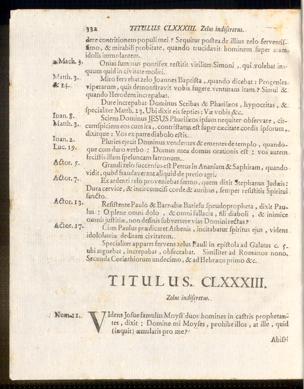 332 TITULUS CLXXXIII. Zelus indiscretus.
dere contritionem populi mei? Sequitur postea de illius zelo ferventis-
simo, & mirabili probitate, quando trucidavit hominem super aram
idolis immolantem.
Onias summus pontifex restitit viriliter Simoni, qui volebat in-
quum quid in civitate moliri.
Math. 3. Miro fervebat zelo Joannes Baptista, quando dicebat: Progenies
& 14. viperarum, quis demonstravit vobis fugere ventiram iram? Simul &
quando Herodem increpabat.
Dure increpabat Dominus Scribas & Phariseos, hypocritas, &
specialiter Math. 23. Ubi dixit eis septies: Væ vobis &c.
Ioan. 8. Sciens Dominus JESUS Phariseorum ipsum
Math. 3.
dixitque: Vos ex patre diabolo estis.
Ioan. 2. Pluries ejecit Dominus vendentes & ementes de templo, quando-
Luc. 19. que cum duro verbo: Domus mea domus orationis est: vos autem
fecistis illam speluncam latronum.
Actor. 5. Grandi zelo succensus est Petrus in Ananiam & Saphiram, quando
vidit, quod fraudaverat aliquid de pretio agri.
Actor. 7. Ex ardenti zelo proveniebat sermo, quem dixit Stephanus Judæis:
Dura cervice, & incircumcisi corde & auribus, semper restitistis Spiritui
sancto.
Actor. 13. Resistente Paulo & Barnabæ Barieſu pseudopropheta, dixit Pau-
lus: O plene omni dolo, & omni fallacia, fili diaboli, & inimice
omnis justitiæ, non desinis subvertere vias Domini rectas?
Actor. 17. Cum Paulus prædicaret Athenis, incitabatur spiritus ejus, videns
idololatriæ deditam civitatem.
Specialiter apparet fervens zelus Pauli in epistola ad Galatas c. 5.
ubi arguebat, increpabat, obsecrabat. Similiter ad Romanos nono.
Secunda Corinthiorum undecimo, & ad Hebræos primo &c.
TITULUS. CLXXXIII.
Zelus indiscretus.
Num. 11. VIdens Josue famulus Moysi duos homines in castris prophetan-
tes, dixit: Domine mi Moyses, prohibe illos, at ille, quid
(inquit) æmularis pro me?
Abiſſi